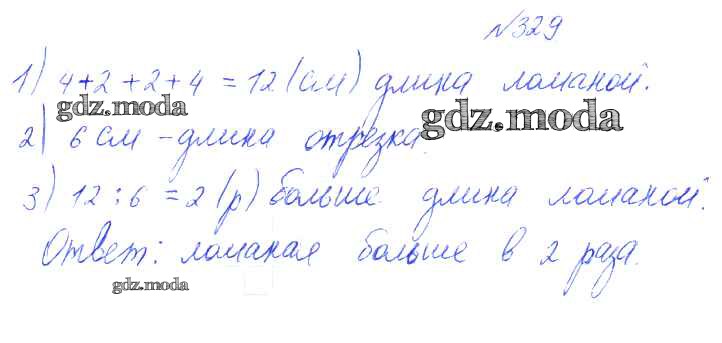 №329
1) 4+2+2+4 = 12 (см) длина ломаной.
gdz.moda
2) 6 см - длина отрезка.
gdz.moda
3) 12 : 6 = 2 (р) больше длина ломаной.
Ответ: ломаная больше в 2 раза.
gdz.moda